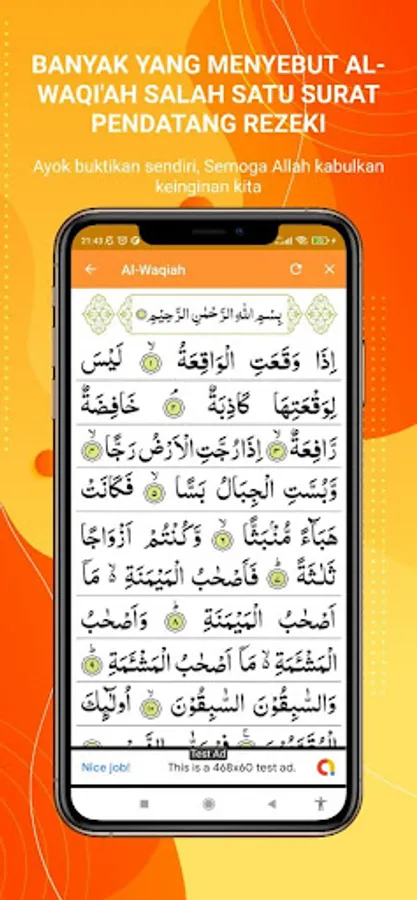 BANYAK YANG MENYEBUT AL-
WAQI'AH SALAH SATU SURAT
PENDATANG REZEKI
Ayok buktikan sendiri, Semoga Allah kabulkan
keinginan kita
21:43
Al-Waqiah
بِسْمِ اللّٰهِ الرَّحْمٰنِ الرَّحِيْمِ
اِذَا وَقَعَتِ الْوَاقِعَةُ ۙ ١ لَيْسَ
لِوَقْعَتِهَا كَاذِبَةٌ ۘ ٢ خَافِضَةٌ
رَّافِعَةٌ ۙ ٣ اِذَا رُجَّتِ الْاَرْضُ رَجًّا ۙ ٤
وَّبُسَّتِ الْجِبَالُ بَسًّا ۙ ٥ فَكَانَتْ
هَبَاۤءً مُّنْۢبَثًّا ۙ ٦ وَّكُنْتُمْ اَزْوَاجًا
ثَلٰثَةً ۗ ٧ فَاَصْحٰبُ الْمَيْمَنَةِ ۙ مَآ
اَصْحٰبُ الْمَيْمَنَةِ ۗ ٨ وَاَصْحٰبُ
الْمَشْـَٔمَةِ ۙ مَآ اَصْحٰبُ الْمَشْـَٔمَةِ ۗ ٩
وَالسّٰبِقُوْنَ السّٰبِقُوْنَ ۙ ١٠ اُولٰۤىِٕكَ
Test Ad
Nice job!
This is a 468x60 test ad.